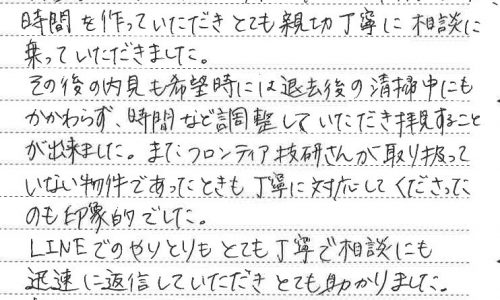 時間を作っていただきとても親切丁寧に相談に
乗っていただきました。
その後の内見も希望時には退去後の清掃中にも
かかわらず、時間など調整していただき拝見すること
が出来ました。また、フロンティア技研さんが取り扱って
いない物件であったときも丁寧に対応してくださった
のも印象的でした。
LINEでのやりとりもとても丁寧で相談にも
迅速に返信していただきとても助かりました。